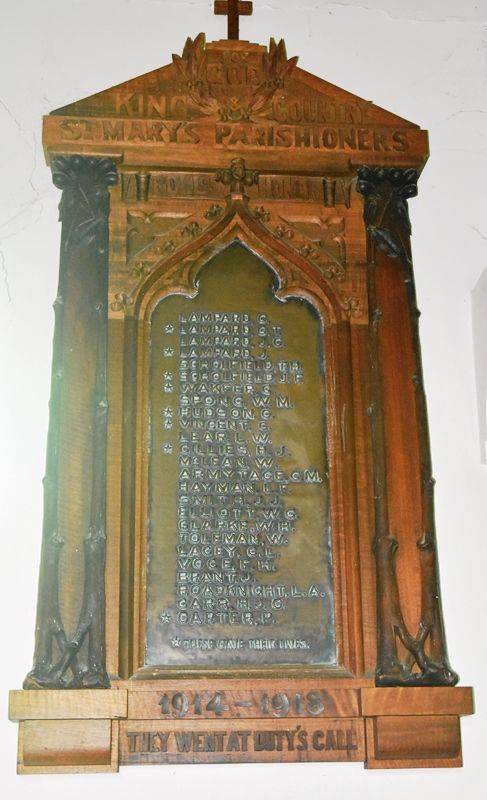 GOD
KING & COUNTRY
ST MARY'S PARISHIONERS
HONOUR
LAMPARD, C.
* LAMPARD, G.T.
LAMPARD, J.G.
* LAMPARD, J.
SCHOLFIELD, T.H.
* SCHOLFIELD, J.F.
* WAKFER, S.
SPONG, W.M.
* HUDSON, G.
* VINCENT, S.
LEAR, L.W.
* GILLIES, H.J.
McLEAN, W.
ARMYTAGE, C.M.
HAYMAN, L.F.
SMITH, J.J.
ELLIOTT, W.G.
CLARKE, W.H.
TOLEMAN, W.
LACEY, C.L.
VOGE, F.H.
BRANT, J.
ROADKNIGHT, L.A.
CARR, H.J.G.
* CARTER, P.
* THESE GAVE THEIR LIVES.
1914 - 1918
THEY WENT AT DUTY'S CALL